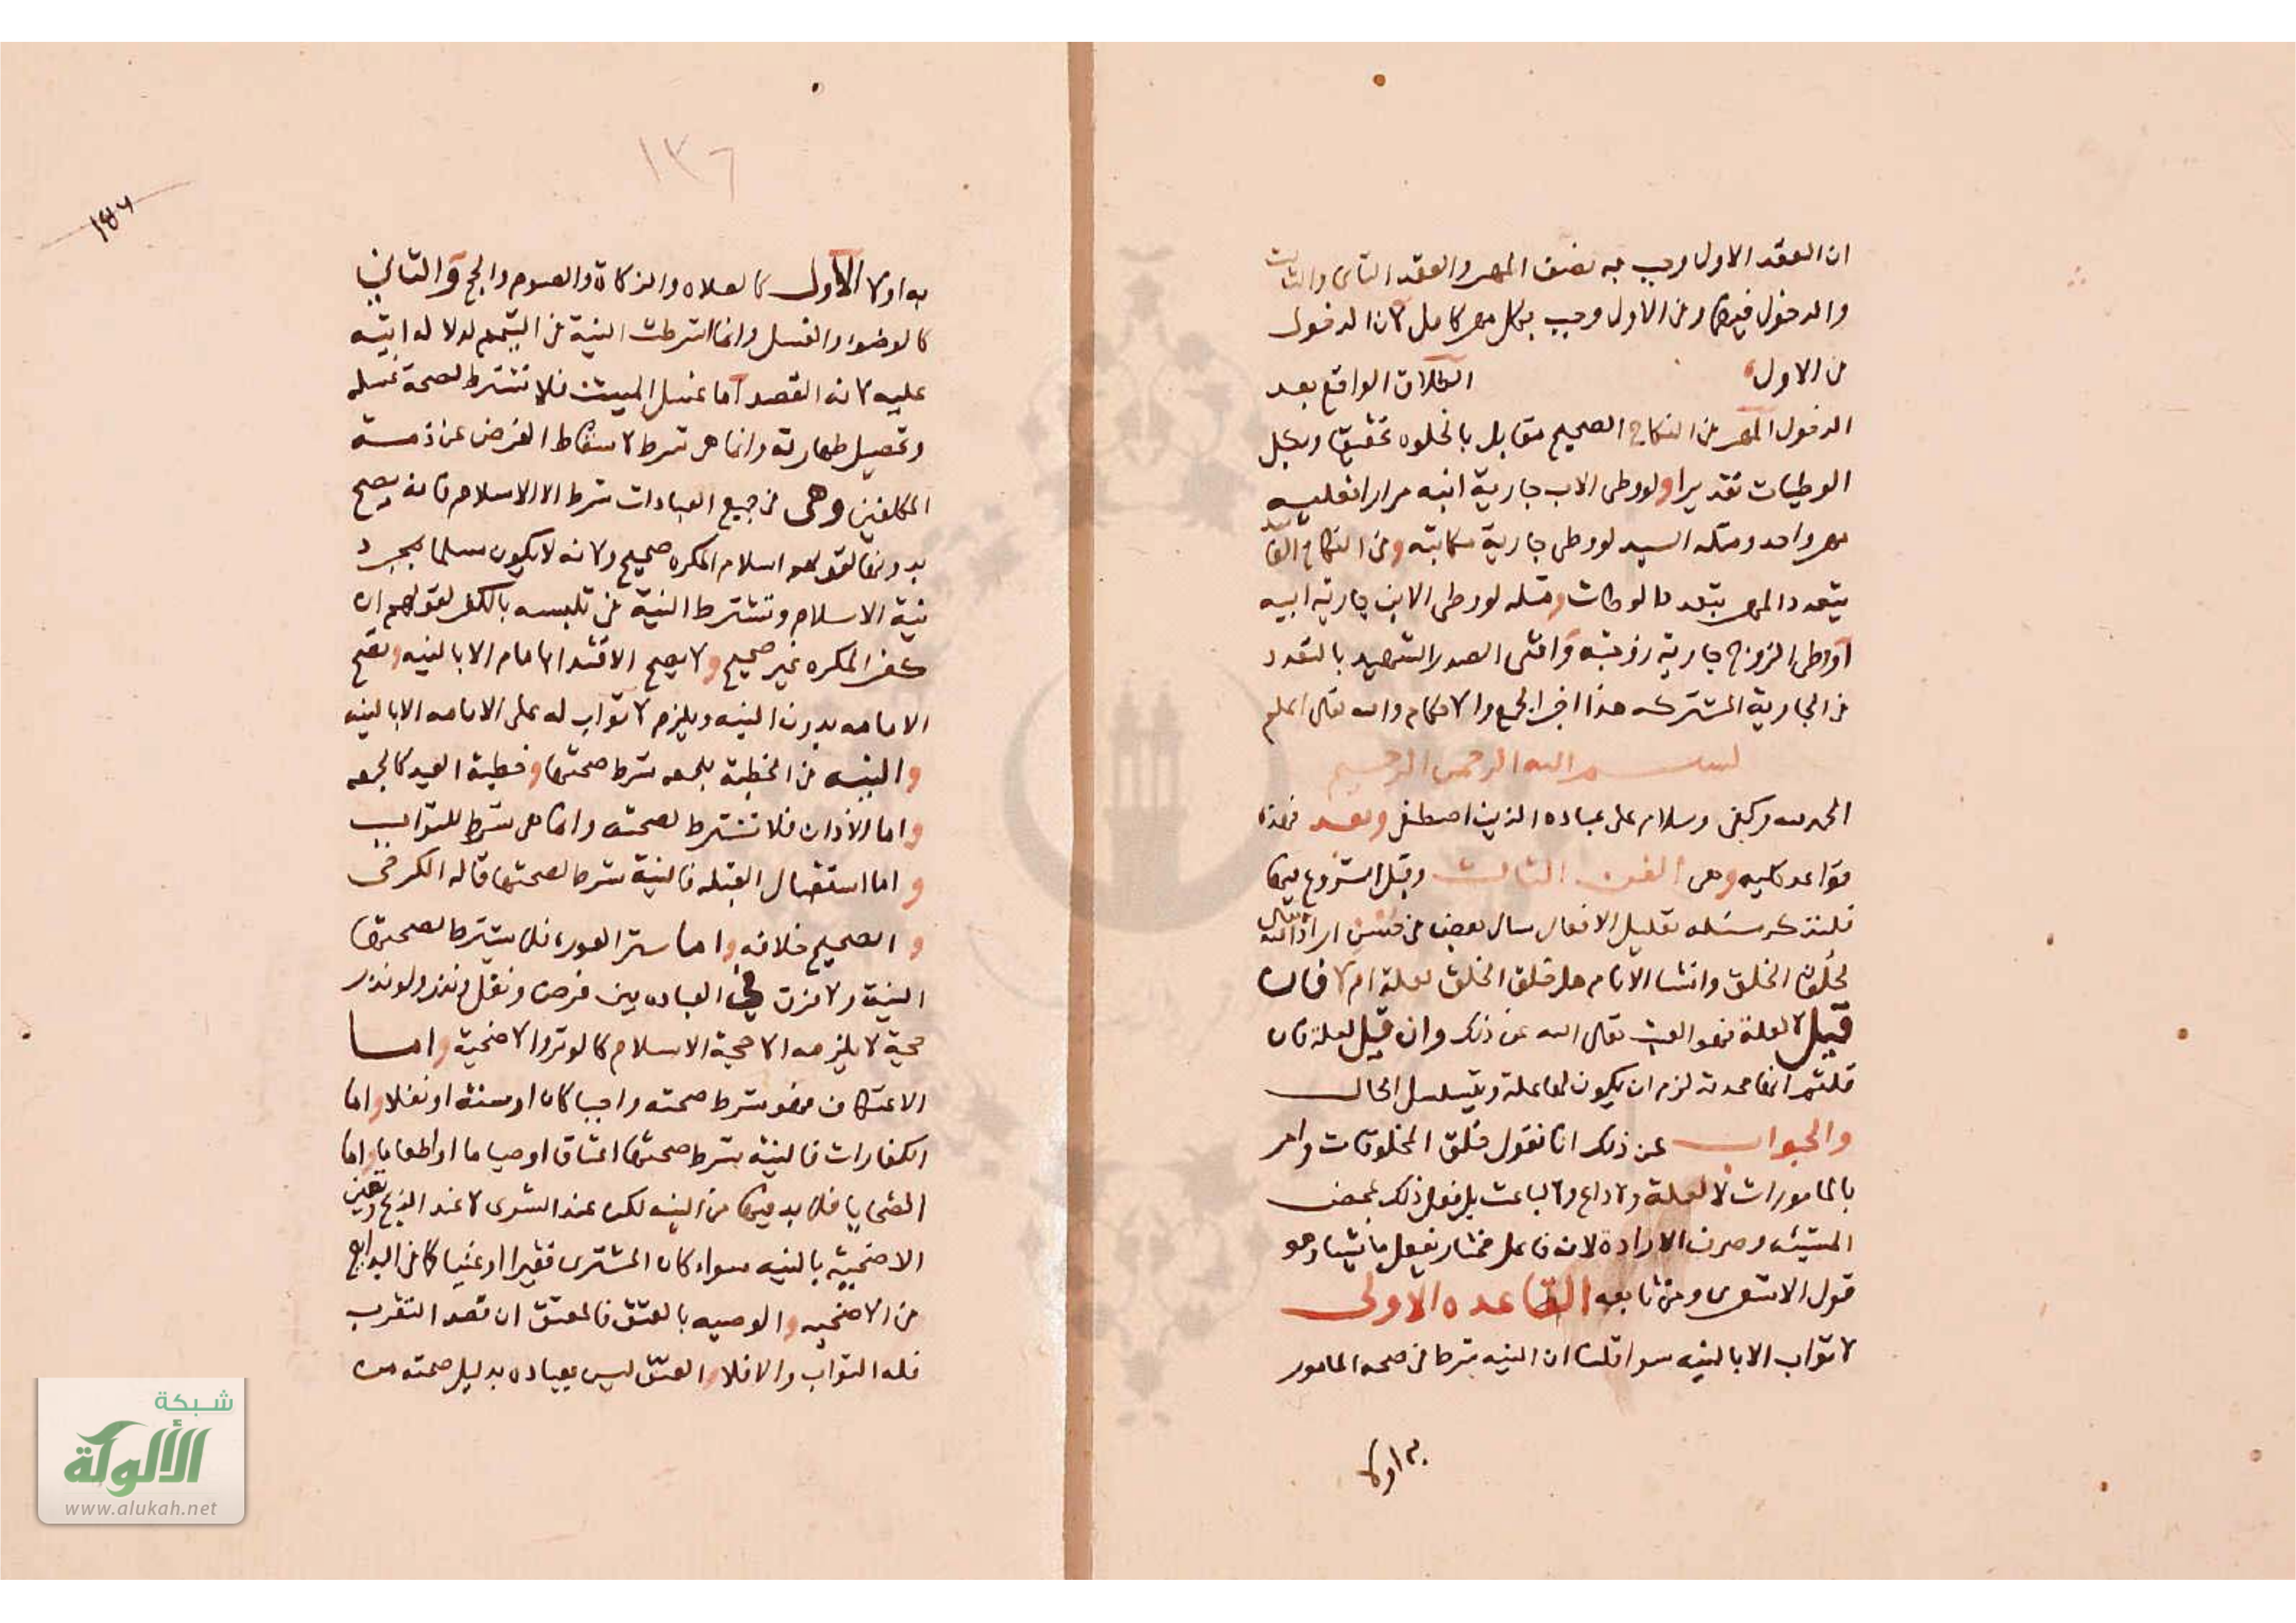 ان العقد الاول وجب به نصف المهر والعقد الثاني والثالث
والدخول فيهما وفي الاول وجب بكل مهر كامل لان الدخول
في الاول الطلاق الواقع بعد
الدخول المهر في النكاح الصحيح مقابل بالخلوة تحقيقا وبكل
الوطيات تقديرا ولو وطى الاب جارية ابنه مرارا فعليه
مهر واحد ومثله السيد لو وطى جارية مكاتبه وفي النكاح الفاسد
يتعدد المهر بتعدد الوطات ومثله لو وطى الابن جارية ابيه
او وطى الزوج جارية زوجته وافتى الصدر الشهيد بالتعدد
في الجارية المشتركه هذا اخر الجمع والاحكام والله تعالى اعلم
بسم الله الرحمن الرحيم
الحمد لله وكفى وسلام على عباده الذين اصطفى وبعد فهذه
قواعد كليه وهى الفن الثالث وقبل الشروع فيها
فلنذكر مسئله تعليل الافعال سال بعض من اراد الله تعالى
لخلق الخلق وانشا الانام هل خلق الخلق لعلة ام لا فان
قيل لا لعلة فهو العبث تعالى الله عن ذلك وان قيل لعلة فان
قلتم انها محدثة لزم ان يكون لها علة ويتسلسل الحال
والجواب عن ذلك انا نقول خلق المخلوقات وامر
بالمامورات لا لعلة ولا داع ولا لباعث بل فعل ذلك بمحض
المشيئه وصرف الارادة لانه فاعل مختار يفعل ما يشا وهو
قول الاشعرى ومن تابعه القاعده الاولى
لا ثواب الا بالنيه سوا قلنا ان النيه شرط في صحه المامور
به اولا
١٣٦
به اولا الاول كالصلاه والزكاة والصوم والحج والثاني
كالوضوء والغسل وانما اشترطت النية في التيمم لدلالة ايته
عليه لانه القصد اما غسل الميت فلا تشترط لصحة غسله
وتحصيل طهارته وانما هى شرط لاسقاط الفرض عن ذمة
المكلفين وهى في جميع العبادات شرط الا الاسلام فانه يصح
بدونها لقولهم اسلام المكره صحيح ولانه لا يكون مسلما بمجرد
نية الاسلام وتشترط النية في تلبسه بالكفر لقولهم ان
كفر المكره غير صحيح ولا يصح الاقتدا بامام الا بالنيه وتصح
الامامه بدون النيه ويلزم لا ثواب له على الامامه الا بالنيه
والنيه في الخطبة للجمعه شرط صحتها وخطبة العيد كالجمعه
واما الاذان فلا تشترط لصحته وانما هى شرط للثواب
واما استقبال القبله فالنية شرط لصحتها قاله الكرخى
والصحيح خلافه واما ستر العورة فلا يشترط لصحتها
النية ولا فرق في العباده بين فرض ونفل ونذر ولو نذر
حجة لا يلزمه الا حجة الاسلام كالوتر والاضحية واما
الاعتكاف فهو شرط صحته واجبا كان او سنة او نفلا واما
الكفارات فالنية شرط صحتها اعتاقا او صياما او اطعاما واما
الضحايا فلا بد فيها من النيه لكن عند الشرى لا عند الذبح وتعين
الاضحيه بالنيه سواء كان المشترى فقيرا او غنيا كما في البدايع
من الاضحيه والوصيه بالعتق فالمعتق ان قصد التقرب
فله الثواب والا فلا والعتق ليس بعباده بدليل صحته من
شبكة
الألوكة
www.alukah.net